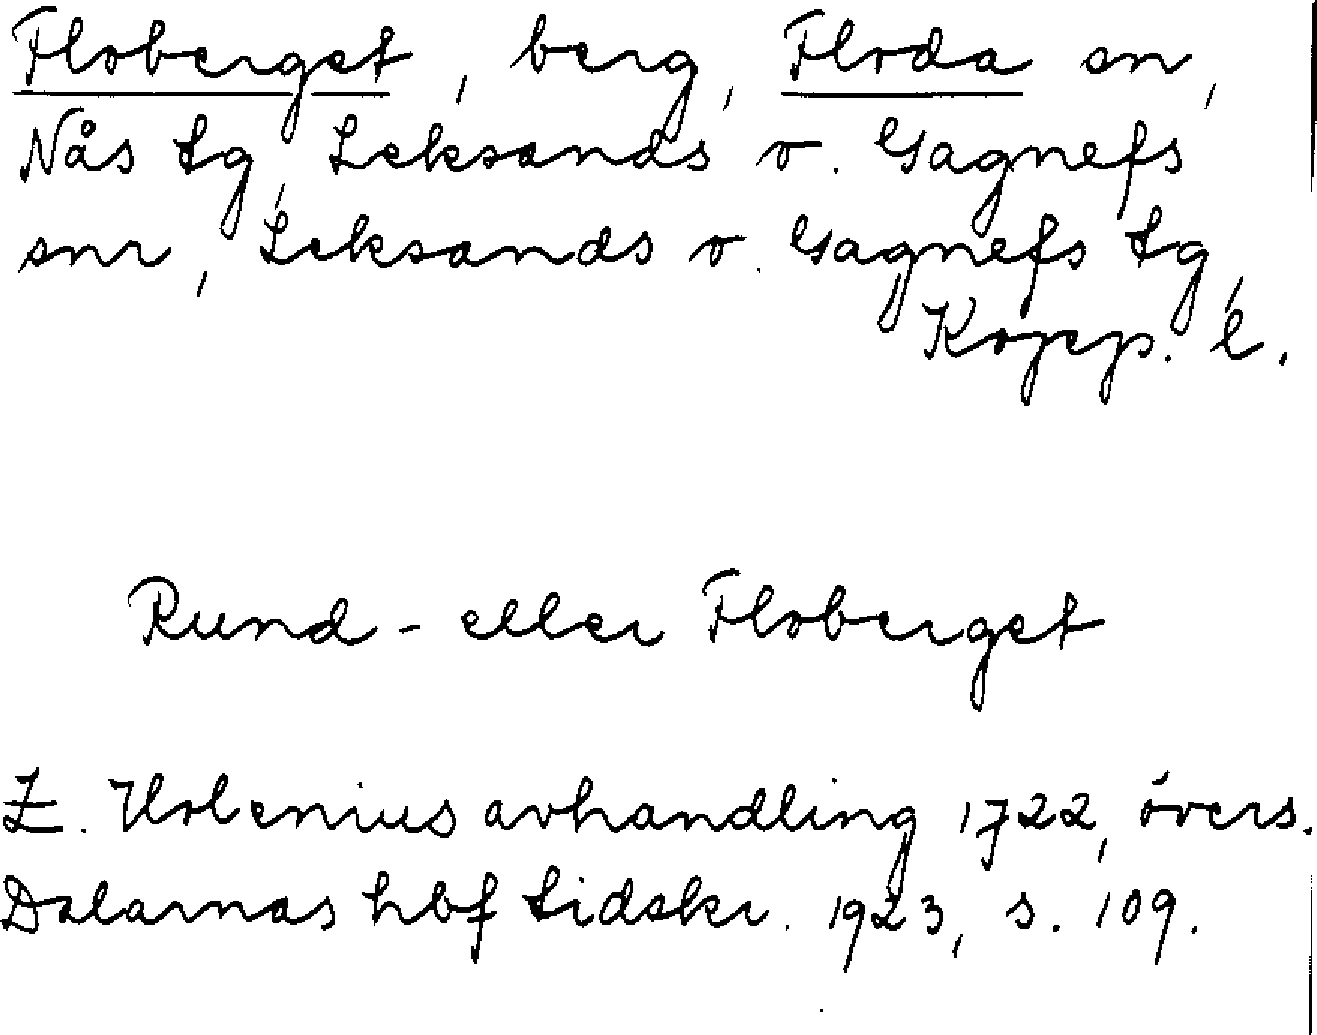 Floberget, berg, Floda sn,
Nås tg, Leksands o. Gagnefs
snr, Leksands o. Gagnefs tg,
Kopp. l.
Rund- eller Floberget
Z. Holenius avhandling 1722, övers.
Dalarnas hbf tidskr. 1923, s. 109.